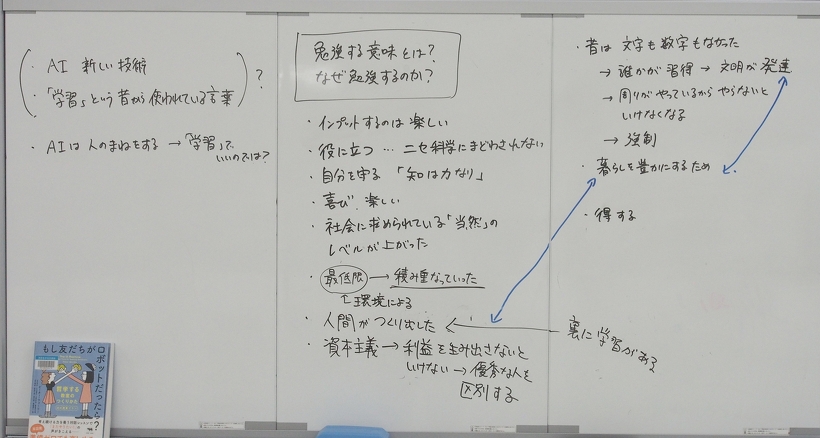 ・AI 新しい技術
・「学習」という昔から使われている言葉
?
・AIは人のまねをする → 「学習」で
いいのでは?
勉強する意味とは?
なぜ勉強するのか?
・インプットするのは楽しい
・役に立つ … ニセ科学にまどわされない
・自分を守る 「知は力なり」
・喜び、楽しい
・社会に求められている「当然」の
レベルが上がった
・最低限 → 積み重なっていった
↑環境による
・人間がつくり出した ← 裏に学習がある
・資本主義 → 利益を生み出さないと
いけない → 優秀な人を
区別する
・昔は 文字も数字もなかった
→ 誰かが習得 → 文明が発達
→ 周りがやっているから やらないと
いけなくなる
→ 強制
・暮らしを豊かにするため
・得する
もし友だちが
ロボットだったら?
哲学する